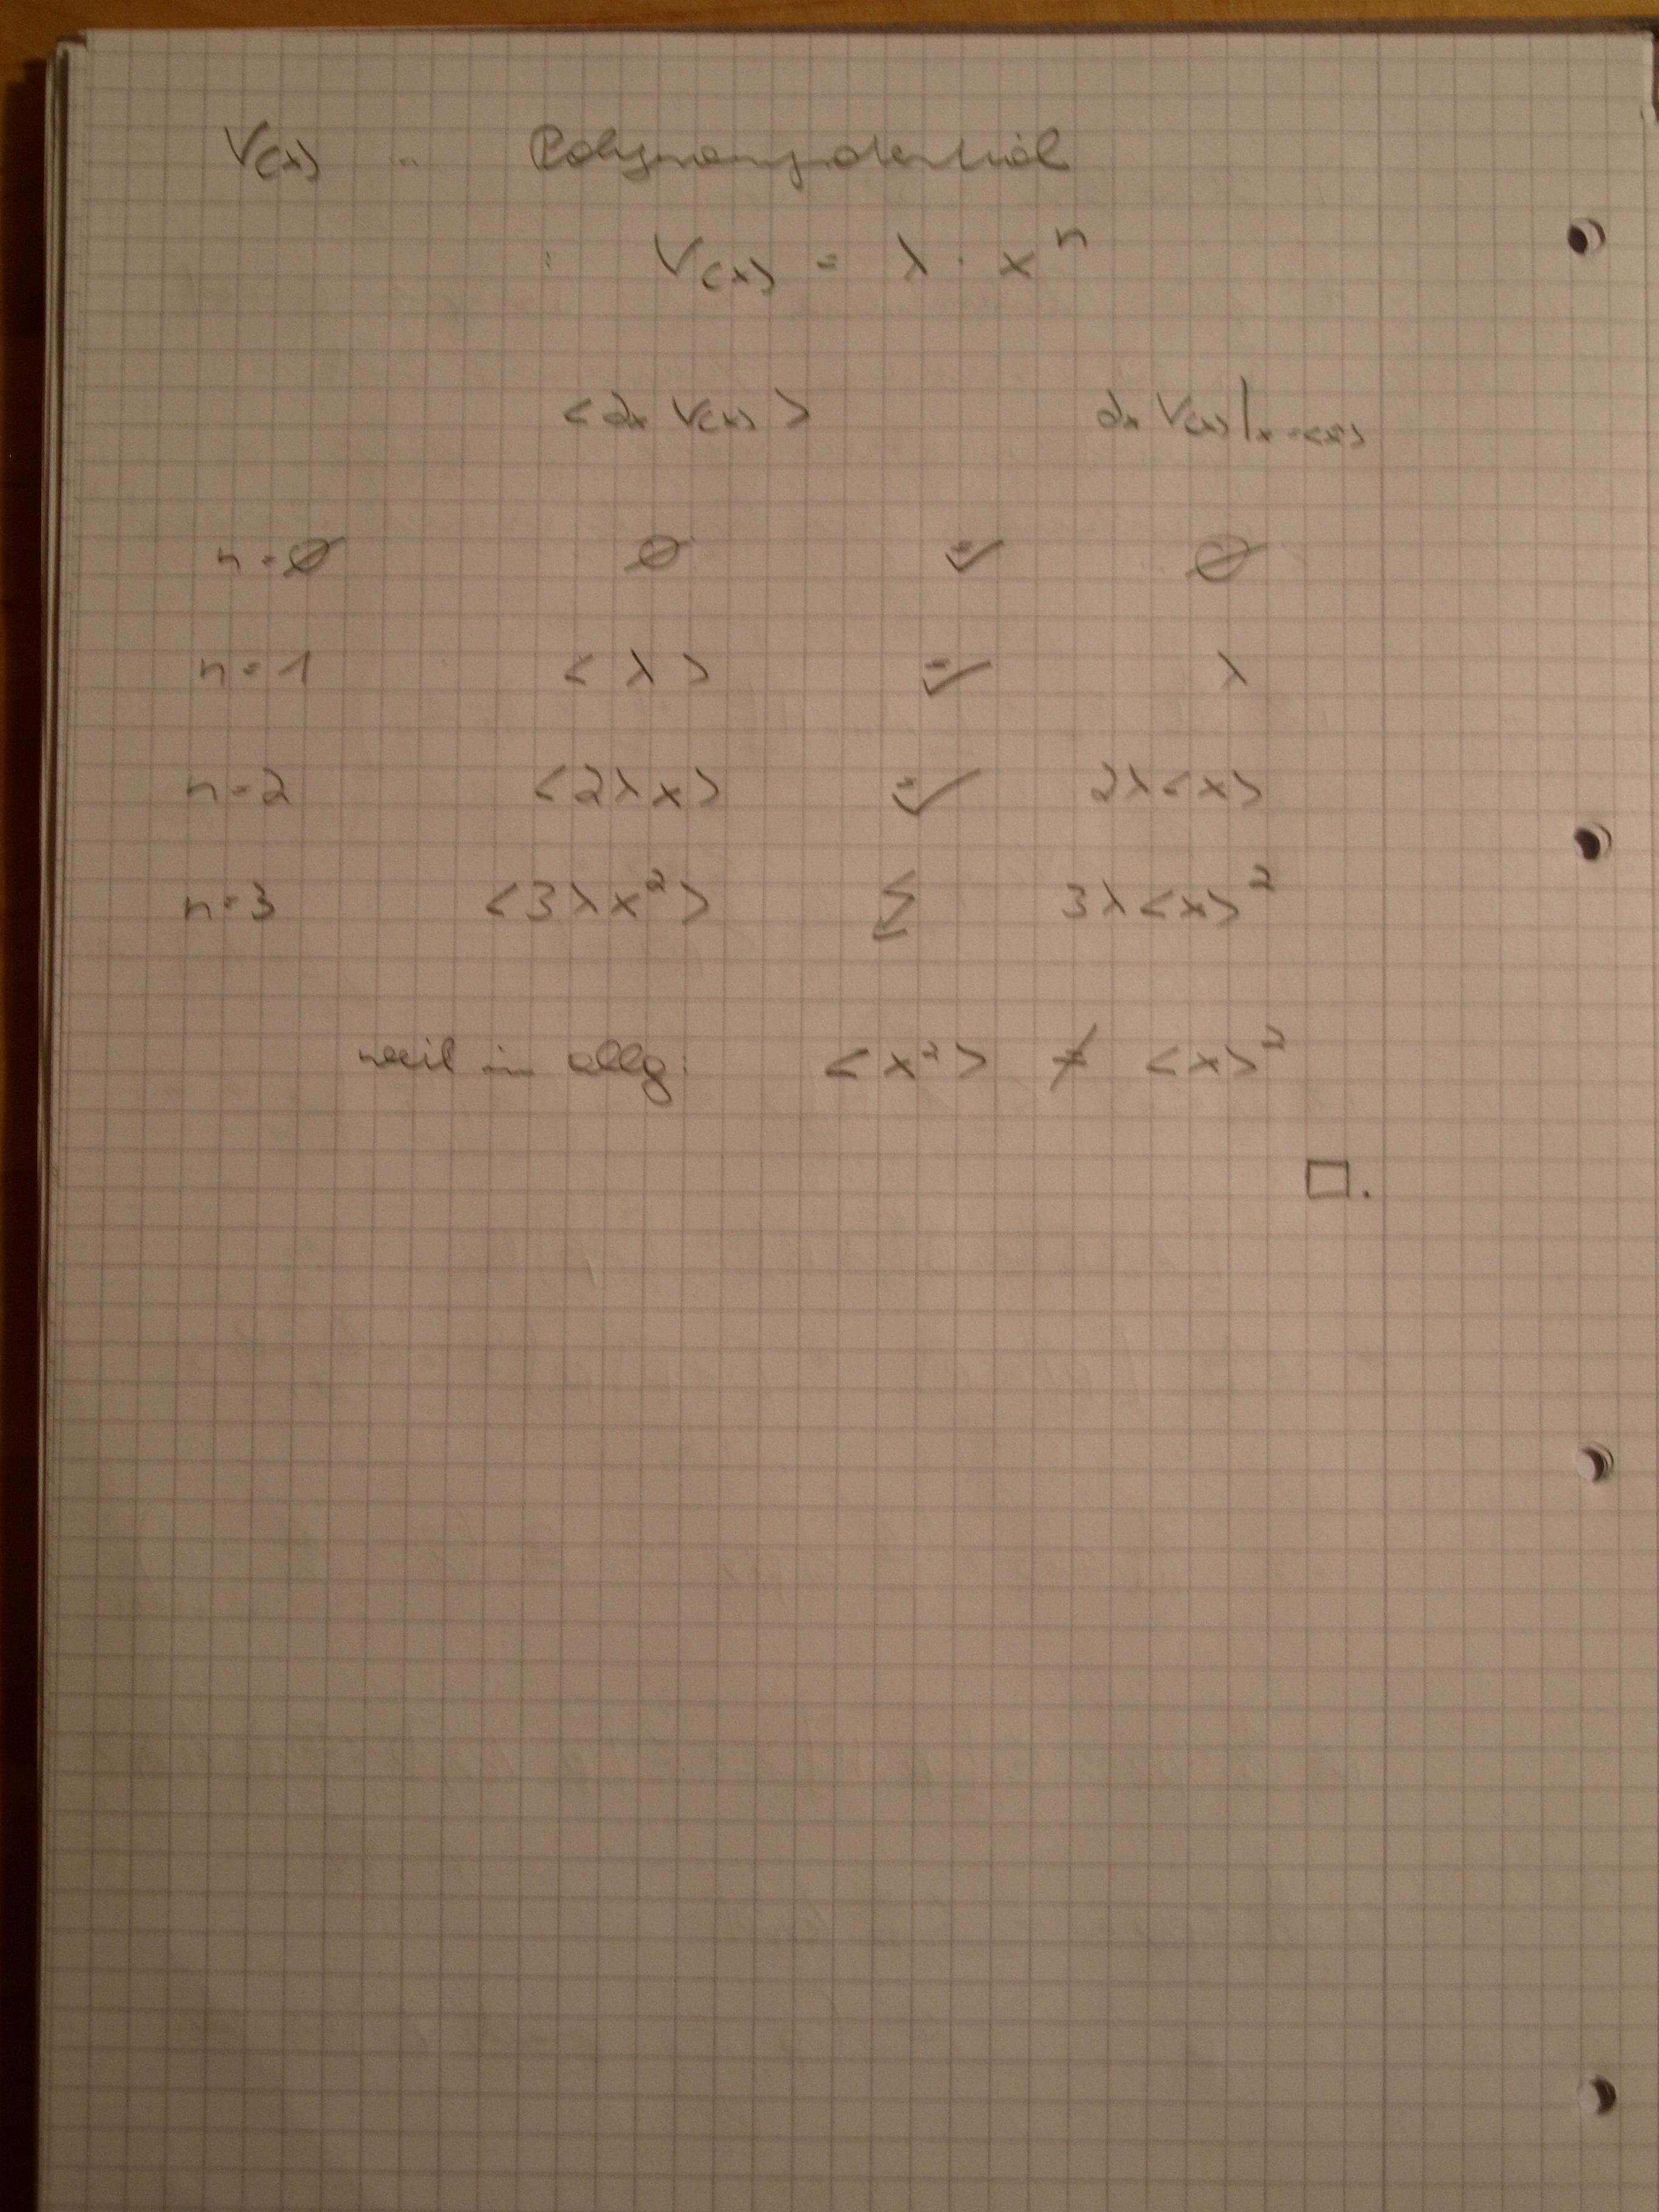 V(x) .. Polynompotential
: V(x) = λ · xⁿ
<∂x V(x)> ∂x V(x)|x=<x>
n=∅ ∅ =✓ ∅
n=1 <λ> =✓ λ
n=2 <2λx> =✓ 2λ<x>
n=3 <3λx²> ↯ 3λ<x>²
weil in allg: <x²> ≠ <x>²
□.